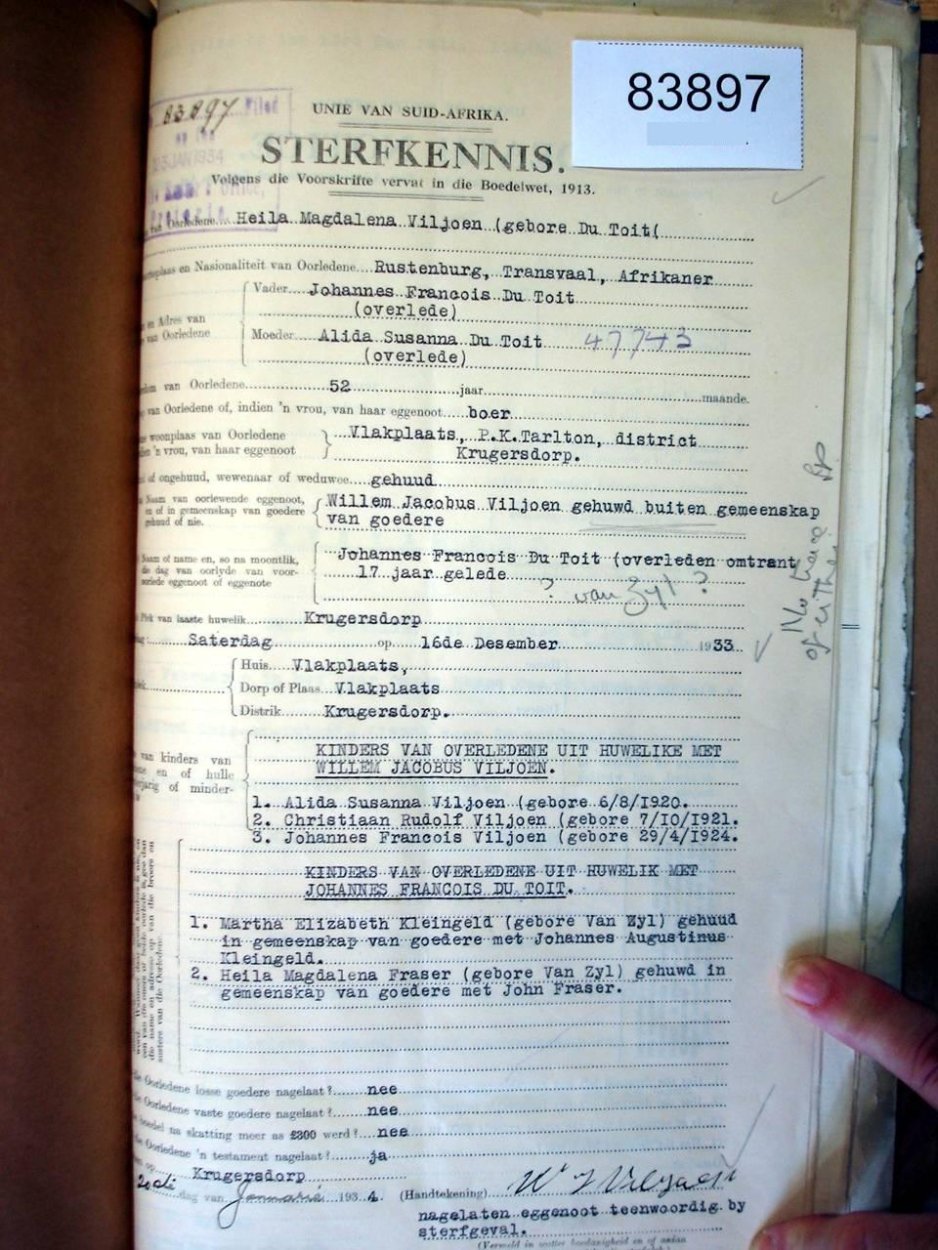 83897
83897 Filed
on the
JAN 1934
Office,
Pretoria
UNIE VAN SUID-AFRIKA.
STERFKENNIS.
Volgens die Voorskrifte vervat in die Boedelwet, 1913.
van Oorledene... Heila Magdalena Viljoen (gebore Du Toit(
en Nasionaliteit van Oorledene... Rustenburg, Transvaal, Afrikaner
Vader... Johannes Francois Du Toit
(overlede)
en Adres van
van Oorledene
Moeder... Alida Susanna Du Toit 47743
(overlede)
van Oorledene... 52 ...jaar ...maande.
van Oorledene of, indien 'n vrou, van haar eggenoot... boer
woonplaas van Oorledene
'n vrou, van haar eggenoot
Vlakplaats, P.K.Tarlton, district
Krugersdorp.
of ongehuud, wewenaar of weduwee... gehuud
Naam van oorlewende eggenoot,
en of in gemeenskap van goedere
gehuud of nie.
Willem Jacobus Viljoen gehuwd buiten gemeenskap
van goedere
Naam of name en, so na moontlik,
die dag van oorlyde van voor-
oorlede eggenoot of eggenote
Johannes Francois Du Toit (overleden omtrant
17 jaar gelede
? van Zyl ?
Plek van laaste huwelik Krugersdorp
Saterdag op 16de Desember 1933
Huis Vlakplaats,
Dorp of Plaas Vlakplaats
Distrik Krugersdorp.
van kinders van
en of hulle
of minder-
KINDERS VAN OVERLEDENE UIT HUWELIKE MET
WILLEM JACOBUS VILJOEN.
1. Alida Susanna Viljoen (gebore 6/8/1920.
2. Christiaan Rudolf Viljoen (gebore 7/10/1921.
3. Johannes Francois Viljoen (gebore 29/4/1924.
KINDERS VAN OVERLEDENE UIT HUWELIK MET
JOHANNES FRANCOIS DU TOIT.
1. Martha Elizabeth Kleingeld (gebore Van Zyl) gehuud
in gemeenskap van goedere met Johannes Augustinus
Kleingeld.
2. Heila Magdalena Fraser (gebore Van Zyl) gehuwd in
gemeenskap van goedere met John Fraser.
die name en adresse op van die broers en
susters van die Oorledene.
Oorledene losse goedere nagelaat? nee
Oorledene vaste goedere nagelaat? nee
boedel na skatting meer as £300 werd? nee
Oorledene 'n testament nagelaat? ja
op Krugersdorp
dag van Januarie 1934. (Handtekening) W J Viljoen
nagelaten eggenoot teenwoordig by
sterfgeval.